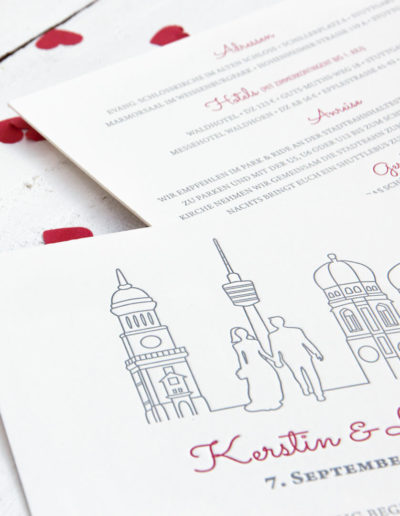 Adressen
EVANG. SCHLOSSKIRCHE IM ALTEN SCHLOSS • SCHILLERPLATZ
MARMORSAAL IM WEISSENBURGPARK • HOHENHEIMER STRASSE
Hotels (MIT ZIMMERKONTINGENT BIS 1. MAI)
WALDHOTEL • DZ 129 € • GUTS-MUTHS-WEG 18 • STUTTGART
MESSEHOTEL WALDHORN • DZ 68-96 € • EPPLESTRASSE
Anreise
WIR EMPFEHLEN IM PARK & RIDE AN DER STADTBAHNHALTEST
ZU PARKEN UND MIT DER U5, U6 ODER U12 BIS ZUM SCH
KIRCHE NEHMEN WIR GEMEINSAM DIE STADTBAHN U
NACHTS BRINGT EUCH EIN SHUTTLEBUS ZU
Ge
Kerstin &
7. SEPTEMBER